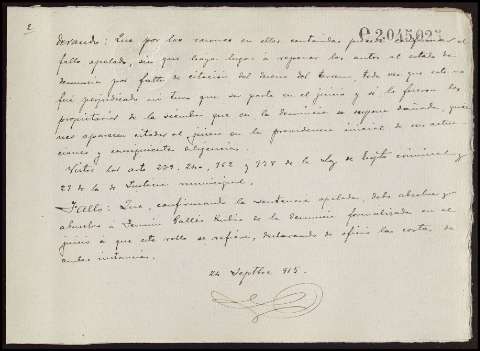 2
C.2.045.023
derando: Que por las razones en ellos contenidas procede confirmar el
fallo apelado, sin que haya lugar a reponer los autos al estado de
denuncia por falta de citacion del dueno del terreno, toda vez que este no
fue perjudicado ni tuvo que ser parte en el juicio y si lo fueron los
propietarios de la siembra que en la denuncia se supone dañada, quie
nes aparecen citados al juicio en la providencia inicial de sus actua
ciones y consiguiente diligencia.
Vistos los arts 239, 240, 962 y 978 de la Ley de Enjto criminal y
27 de la de Justicia municipal.
Fallo: Que, confirmando la sentencia apelada, debo absolver y
absuelvo á Fermin Pallés Rubio de la denuncia formalizada en el
juicio á que este rollo se refiere, declarando de oficio las costas de
ambas instancias.
24 Septbre 915.